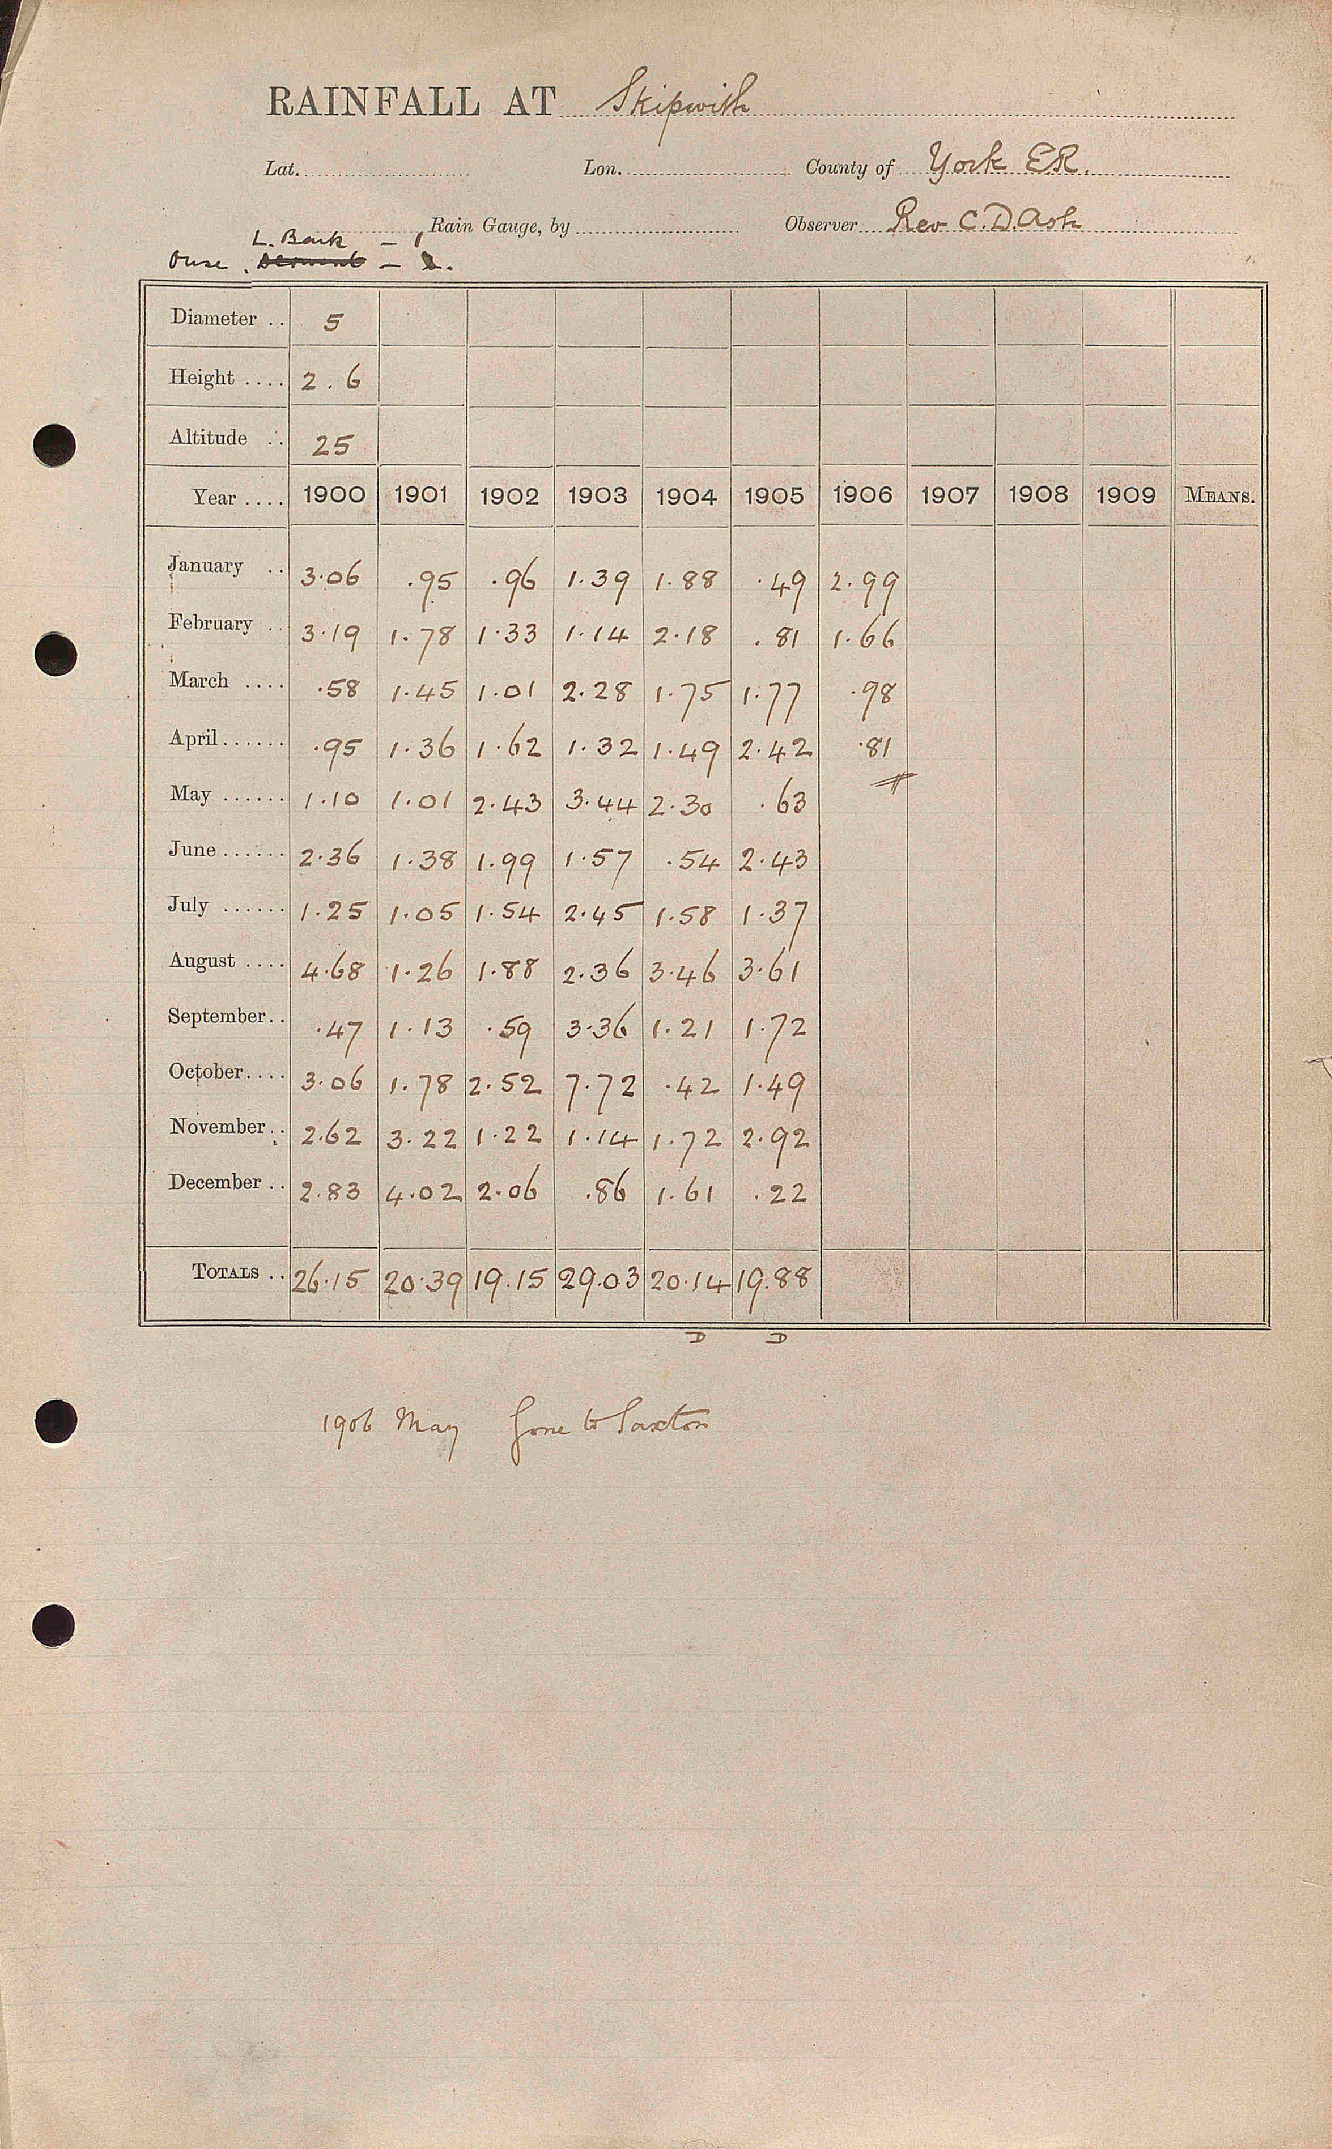 RAINFALL AT Skipwith
Lat. Lon. County of York ER.
Rain Gauge, by Observer Rev C. D. Ash
L. Bank - 1
Ouse. Derwent -
Diameter .. 5
Height .... 2.6
Altitude .. 25
Year .... 1900 1901 1902 1903 1904 1905 1906 1907 1908 1909 MEANS.
January .. 3.06 .95 .96 1.39 1.88 .49 2.99
February .. 3.19 1.78 1.33 1.14 2.18 .81 1.66
March .... .58 1.45 1.01 2.28 1.75 1.77 .98
April...... .95 1.36 1.62 1.32 1.49 2.42 .81
May ...... 1.10 1.01 2.43 3.44 2.30 .63
June ...... 2.36 1.38 1.99 1.57 .54 2.43
July ...... 1.25 1.05 1.54 2.45 1.58 1.37
August .... 4.68 1.26 1.88 2.36 3.46 3.61
September.. .47 1.13 .59 3.36 1.21 1.72
October.... 3.06 1.78 2.52 7.72 .42 1.49
November.. 2.62 3.22 1.22 1.14 1.72 2.92
December .. 2.83 4.02 2.06 .86 1.61 .22
TOTALS .. 26.15 20.39 19.15 29.03 20.14 19.88
D D
1906 May Gone to Saxton